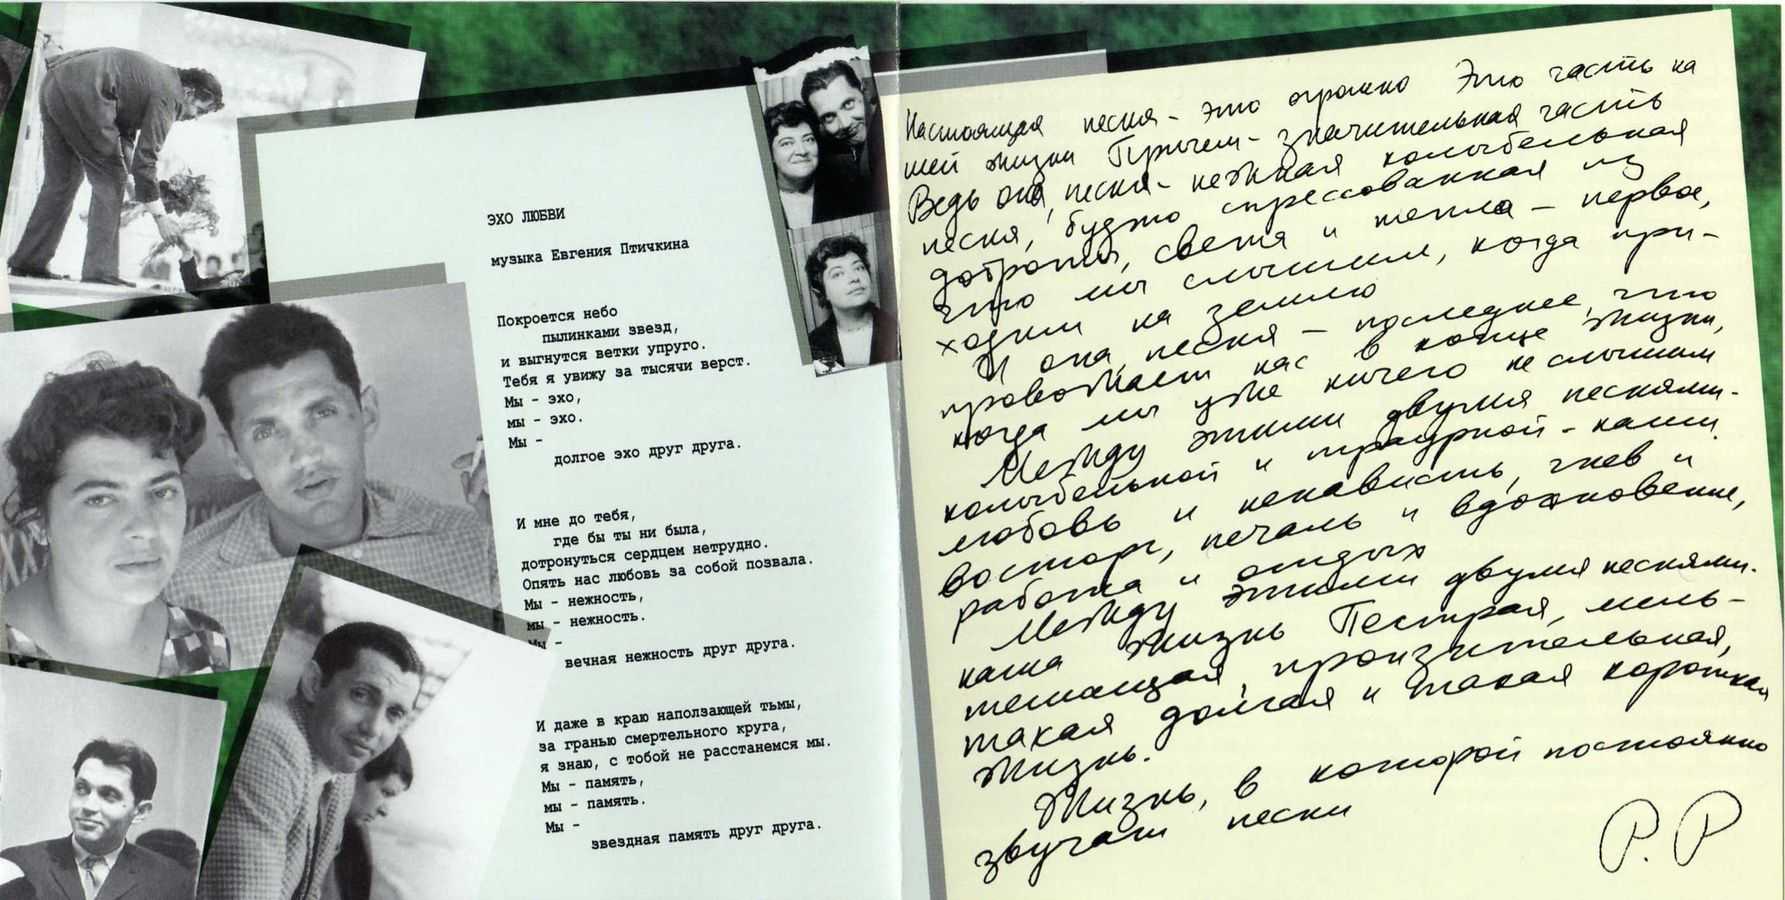 ЭХО ЛЮБВИ
музыка Евгения Птичкина
Покроется небо
пылинками звезд,
и выгнутся ветки упруго.
Тебя я увижу за тысячи верст.
Мы - эхо,
мы - эхо.
Мы -
долгое эхо друг друга.
И мне до тебя,
где бы ты ни была,
дотронуться сердцем нетрудно.
Опять нас любовь за собой позвала.
Мы - нежность,
мы - нежность.
Мы -
вечная нежность друг друга.
И даже в краю наползающей тьмы,
за гранью смертельного круга,
я знаю, с тобой не расстанемся мы.
Мы - память,
мы - память.
Мы -
звездная память друг друга.
Настоящая песня - это огромно Это часть на
шей жизни Причем - значительная часть
Ведь она, песня - нежная колыбельная
песня, будто спрессованная из
доброты, света и тепла - первое,
что мы слышим, когда при-
ходим на землю
И она, песня - последнее, что
провожает нас в конце жизни,
когда мы уже ничего не слышим
Между этими двумя песнями -
колыбельной и траурной - наши
любовь и ненависть, гнев и
восторг, печаль и вдохновение,
работа и отдых
Между этими двумя песнями -
наша жизнь Пестрая, мель-
тешащая, пронзительная,
такая долгая и такая короткая
жизнь.
Жизнь, в которой постоянно
звучат песни
Р. Р